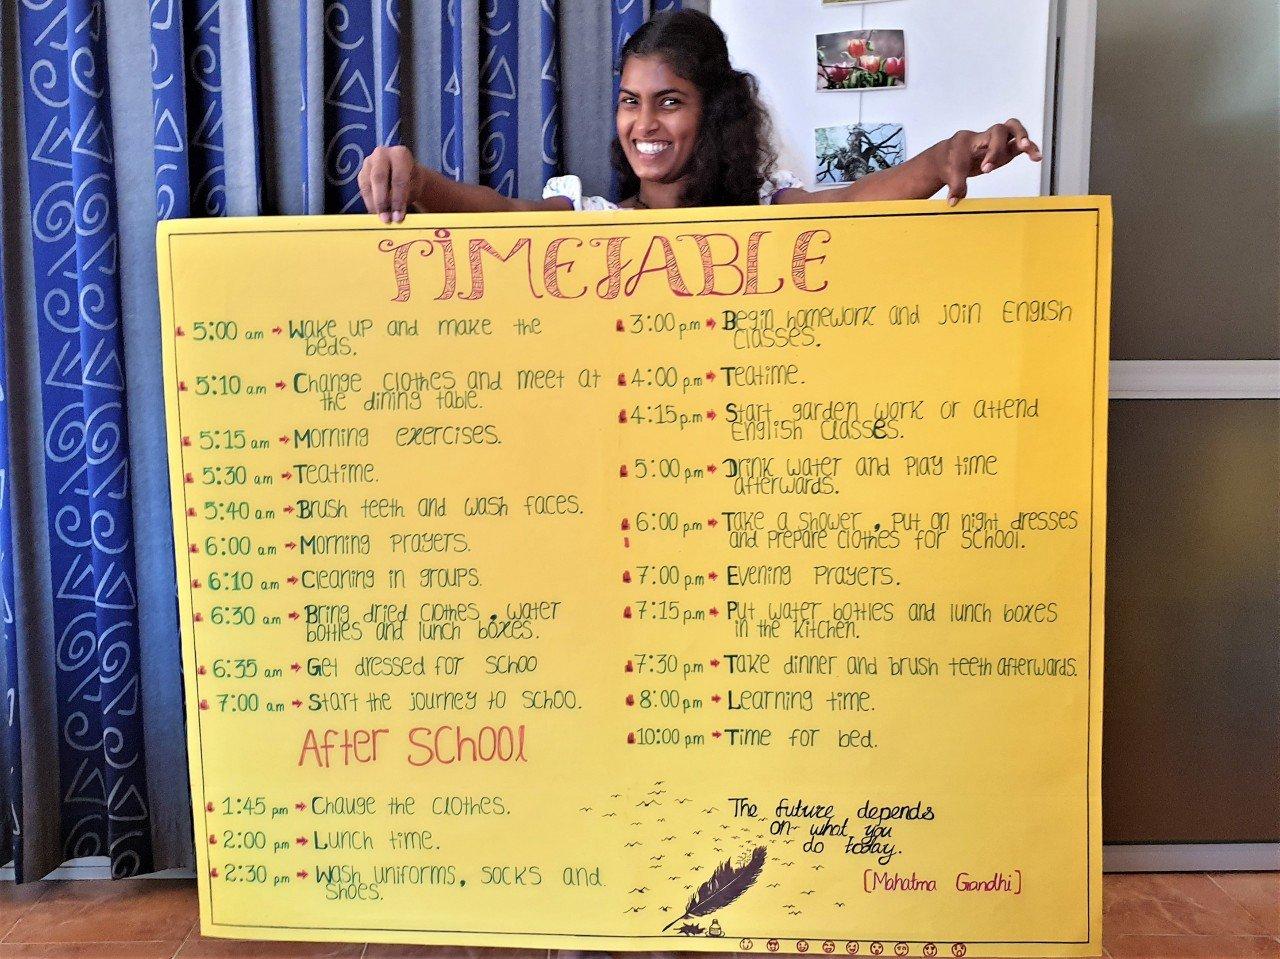 TIMETABLE
5:00 am → Wake up and make the
beds.
5:10 am → Change clothes and meet at
the dining table.
5:15 am → Morning exercises.
5:30 am → Teatime.
5:40 am → Brush teeth and wash faces.
6:00 am → Morning prayers.
6:10 am → Cleaning in groups.
6:30 am → Bring dried clothes, water
bottles and lunch boxes.
6:35 am → Get dressed for schoo
7:00 am → Start the journey to schoo.
After School
1:45 pm → Chauge the clothes.
2:00 pm → Lunch time.
2:30 pm → Wash uniforms, socks and
shoes.
3:00 p.m → Begin homework and join English
classes.
4:00 p.m → Teatime.
4:15 p.m → Start garden work or attend
English classes.
5:00 p.m → Drink water and play time
afterwards.
6:00 p.m → Take a shower, put on night dresses
and prepare clothes for school.
7:00 p.m → Evening prayers.
7:15 p.m → Put water bottles and lunch boxes
in the kitchen.
7:30 p.m → Take dinner and brush teeth afterwards.
8:00 p.m → Learning time.
10:00 p.m → Time for bed.
The future depends
on what you
do today.
[Mahatma Gandhi]